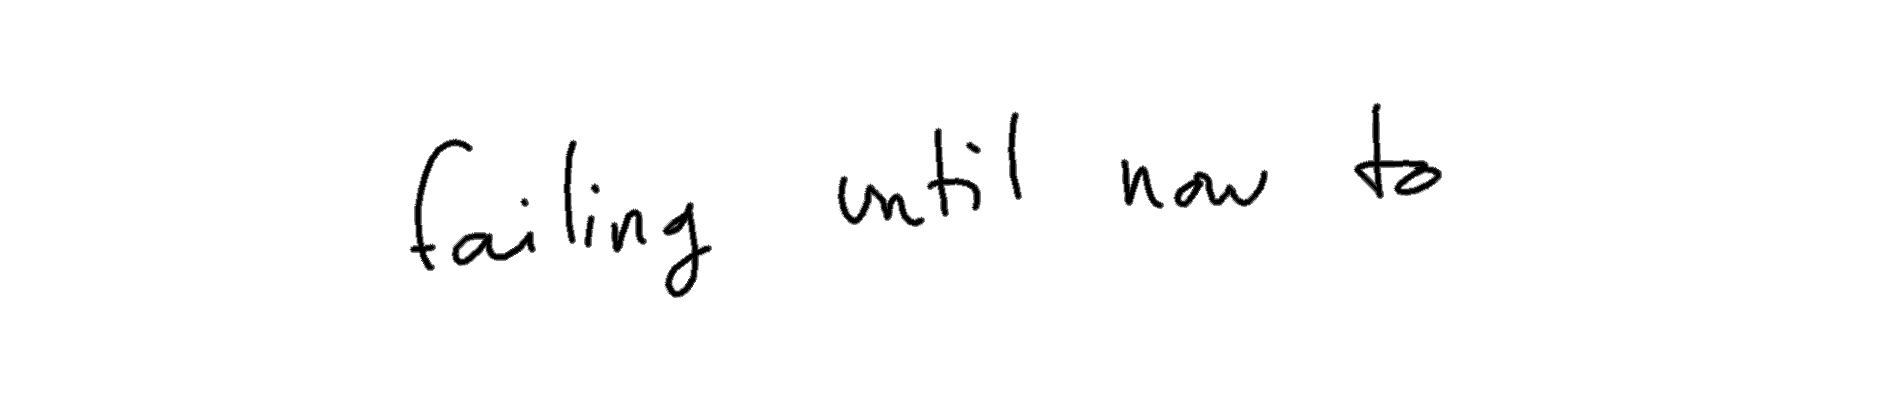 failing until now to